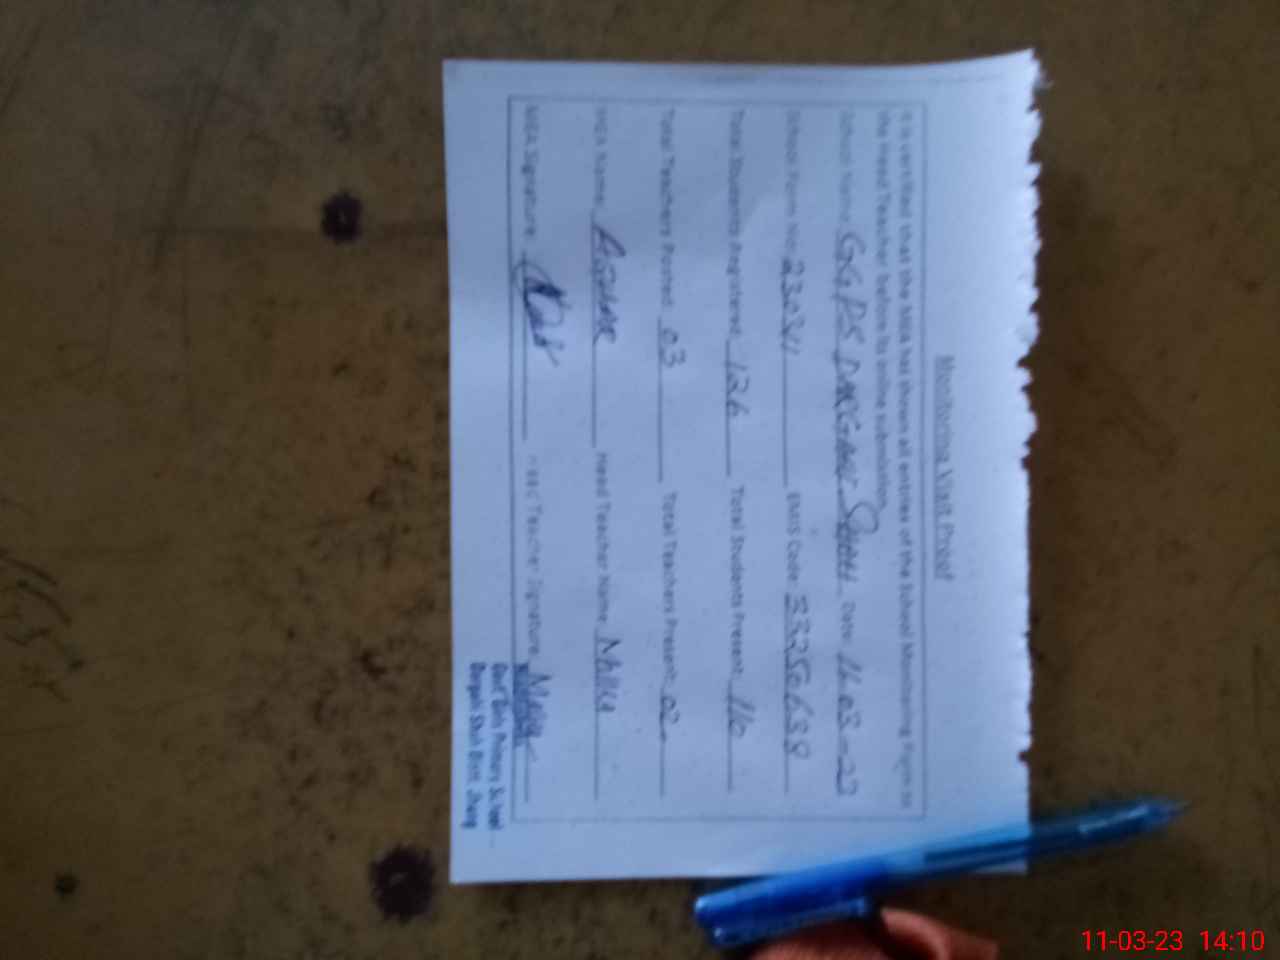 Monitoring Visit Proof
It is certified that the MEA has shown all entries of the School Monitoring Form to
the Head Teacher before its online submission.
School Name GGPS DARGAHI SHAH Date 11-03-23
School Form No. EMIS Code 33250638
Total Students Registered 126 Total Students Present 110
Total Teachers Posted 03 Total Teachers Present 02
MEA Name Head Teacher Name
MEA Signature Head Teacher Signature
Govt Girls Primary School
Dargahi Shah Distt Jhang
11-03-23 14:10